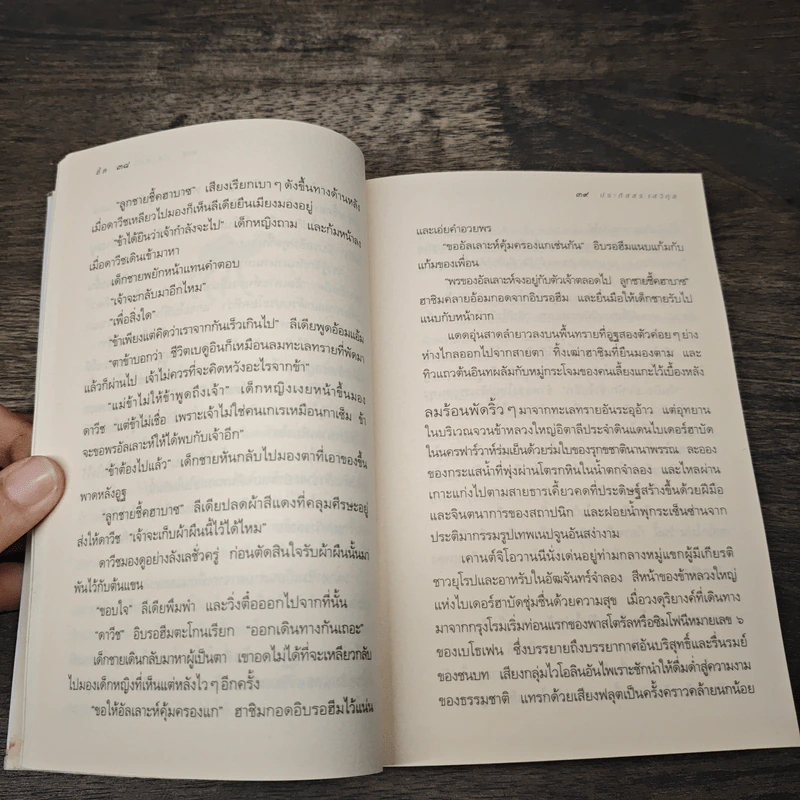 ฮีต ๓๘
"ลูกชายชี้คฮาบาซ" เสียงเรียกเบา ๆ ดังขึ้นทางด้านหลัง
เมื่อดาวีซเหลียวไปมองก็เห็นลีเดียยืนเมียงมองอยู่
"ข้าได้ยินว่าเจ้ากำลังจะไป" เด็กหญิงถาม และก้มหน้าลง
เมื่อดาวีซเดินเข้ามาหา
เด็กชายพยักหน้าแทนคำตอบ
"เจ้าจะกลับมาอีกไหม"
"เพื่อสิ่งใด"
"ข้าเพียงแต่คิดว่าเราจากกันเร็วเกินไป" ลีเดียพูดอ้อมแอ้ม
"ตาข้าบอกว่า ชีวิตเบดูอินก็เหมือนลมทะเลทรายที่พัดมา
แล้วก็ผ่านไป เจ้าไม่ควรที่จะคิดหวังอะไรจากข้า"
"แม่ข้าไม่ให้ข้าพูดถึงเจ้า" เด็กหญิงเงยหน้าขึ้นมอง
ดาวีซ "แต่ข้าไม่เชื่อ เพราะเจ้าไม่ใช่คนเกเรเหมือนกาเซ็ม ข้า
จะขอพรอัลเลาะห์ให้ได้พบกับเจ้าอีก"
"ข้าต้องไปแล้ว" เด็กชายหันกลับไปมองตาที่เอาของขึ้น
พาดหลังอูฐ
"ลูกชายชี้คฮาบาซ" ลีเดียปลดผ้าสีแดงที่คลุมศีรษะอยู่
ส่งให้ดาวีซ "เจ้าจะเก็บผ้าผืนนี้ไว้ได้ไหม"
ดาวีซมองดูอย่างลังเลชั่วครู่ ก่อนตัดสินใจรับผ้าผืนนั้นมา
พันไว้กับต้นแขน
"ขอบใจ" ลีเดียพึมพำ และวิ่งตื๋อออกไปจากที่นั้น
"ดาวีซ" อิบรอฮีมตะโกนเรียก "ออกเดินทางกันเถอะ"
เด็กชายเดินกลับมาหาผู้เป็นตา เขาอดไม่ได้ที่จะเหลียวกลับ
ไปมองเด็กหญิงที่เห็นแต่หลังไว ๆ อีกครั้ง
"ขอให้อัลเลาะห์คุ้มครองแก" ฮาซิมกอดอิบรอฮีมไว้แน่น
๓๙ ประภัสสร เสวิกุล
และเอ่ยคำอวยพร
"ขออัลเลาะห์คุ้มครองแกเช่นกัน" อิบรอฮีมแนบแก้มกับ
แก้มของเพื่อน
"พรของอัลเลาะห์จงอยู่กับตัวเจ้าตลอดไป ลูกชายชี้คฮาบาซ"
ฮาซิมคลายอ้อมกอดจากอิบรอฮีม และยื่นมือให้เด็กชายรับไป
แนบกับหน้าผาก
แดดอุ่นสาดลำยาวลงบนพื้นทรายที่อูฐสองตัวค่อย ๆ ย่าง
ห่างไกลออกไปจากสายตา ทิ้งเฒ่าฮาซิมที่ยืนมองตาม และ
ทิวแถวต้นอินทผลัมกับหมู่กระโจมของคนเลี้ยงแกะไว้เบื้องหลัง
ลมร้อนพัดริ้ว ๆ มาจากทะเลทรายอันระอุอ้าว แต่อุทยาน
ในบริเวณจวนข้าหลวงใหญ่อิตาลีประจำดินแดนไบเดอร์ฮาบัด
ในนครฟาร์วาห์ร่มเย็นด้วยร่มใบของรุกขชาตินานาพรรณ ละออง
ของกระแสน้ำที่พุ่งผ่านโตรกหินในน้ำตกจำลอง และไหลผ่าน
เกาะแก่งไปตามสายธารเคี้ยวคดที่ประดิษฐ์สร้างขึ้นด้วยฝีมือ
และจินตนาการของสถาปนิก และฝอยน้ำพุกระเซ็นซ่านจาก
ประติมากรรมรูปเทพเนปจูนอันสง่างาม
เคานต์จิโอวานนีนั่งเด่นอยู่ท่ามกลางหมู่แขกผู้มีเกียรติ
ชาวยุโรปและอาหรับในอัฒจันทร์จำลอง สีหน้าของข้าหลวงใหญ่
แห่งไบเดอร์ฮาบัดชุ่มชื่นด้วยความสุข เมื่อวงดุริยางค์ที่เดินทาง
มาจากกรุงโรมเริ่มท่อนแรกของพาสโตรัลหรือซิมโฟนีหมายเลข ๖
ของเบโธเฟน ซึ่งบรรยายถึงบรรยากาศอันบริสุทธิ์และรื่นรมย์
ของชนบท เสียงกลุ่มไวโอลินอันไพเราะชักนำให้ดื่มด่ำสู่ความงาม
ของธรรมชาติ แทรกด้วยเสียงฟลุตเป็นครั้งคราวคล้ายนกน้อย